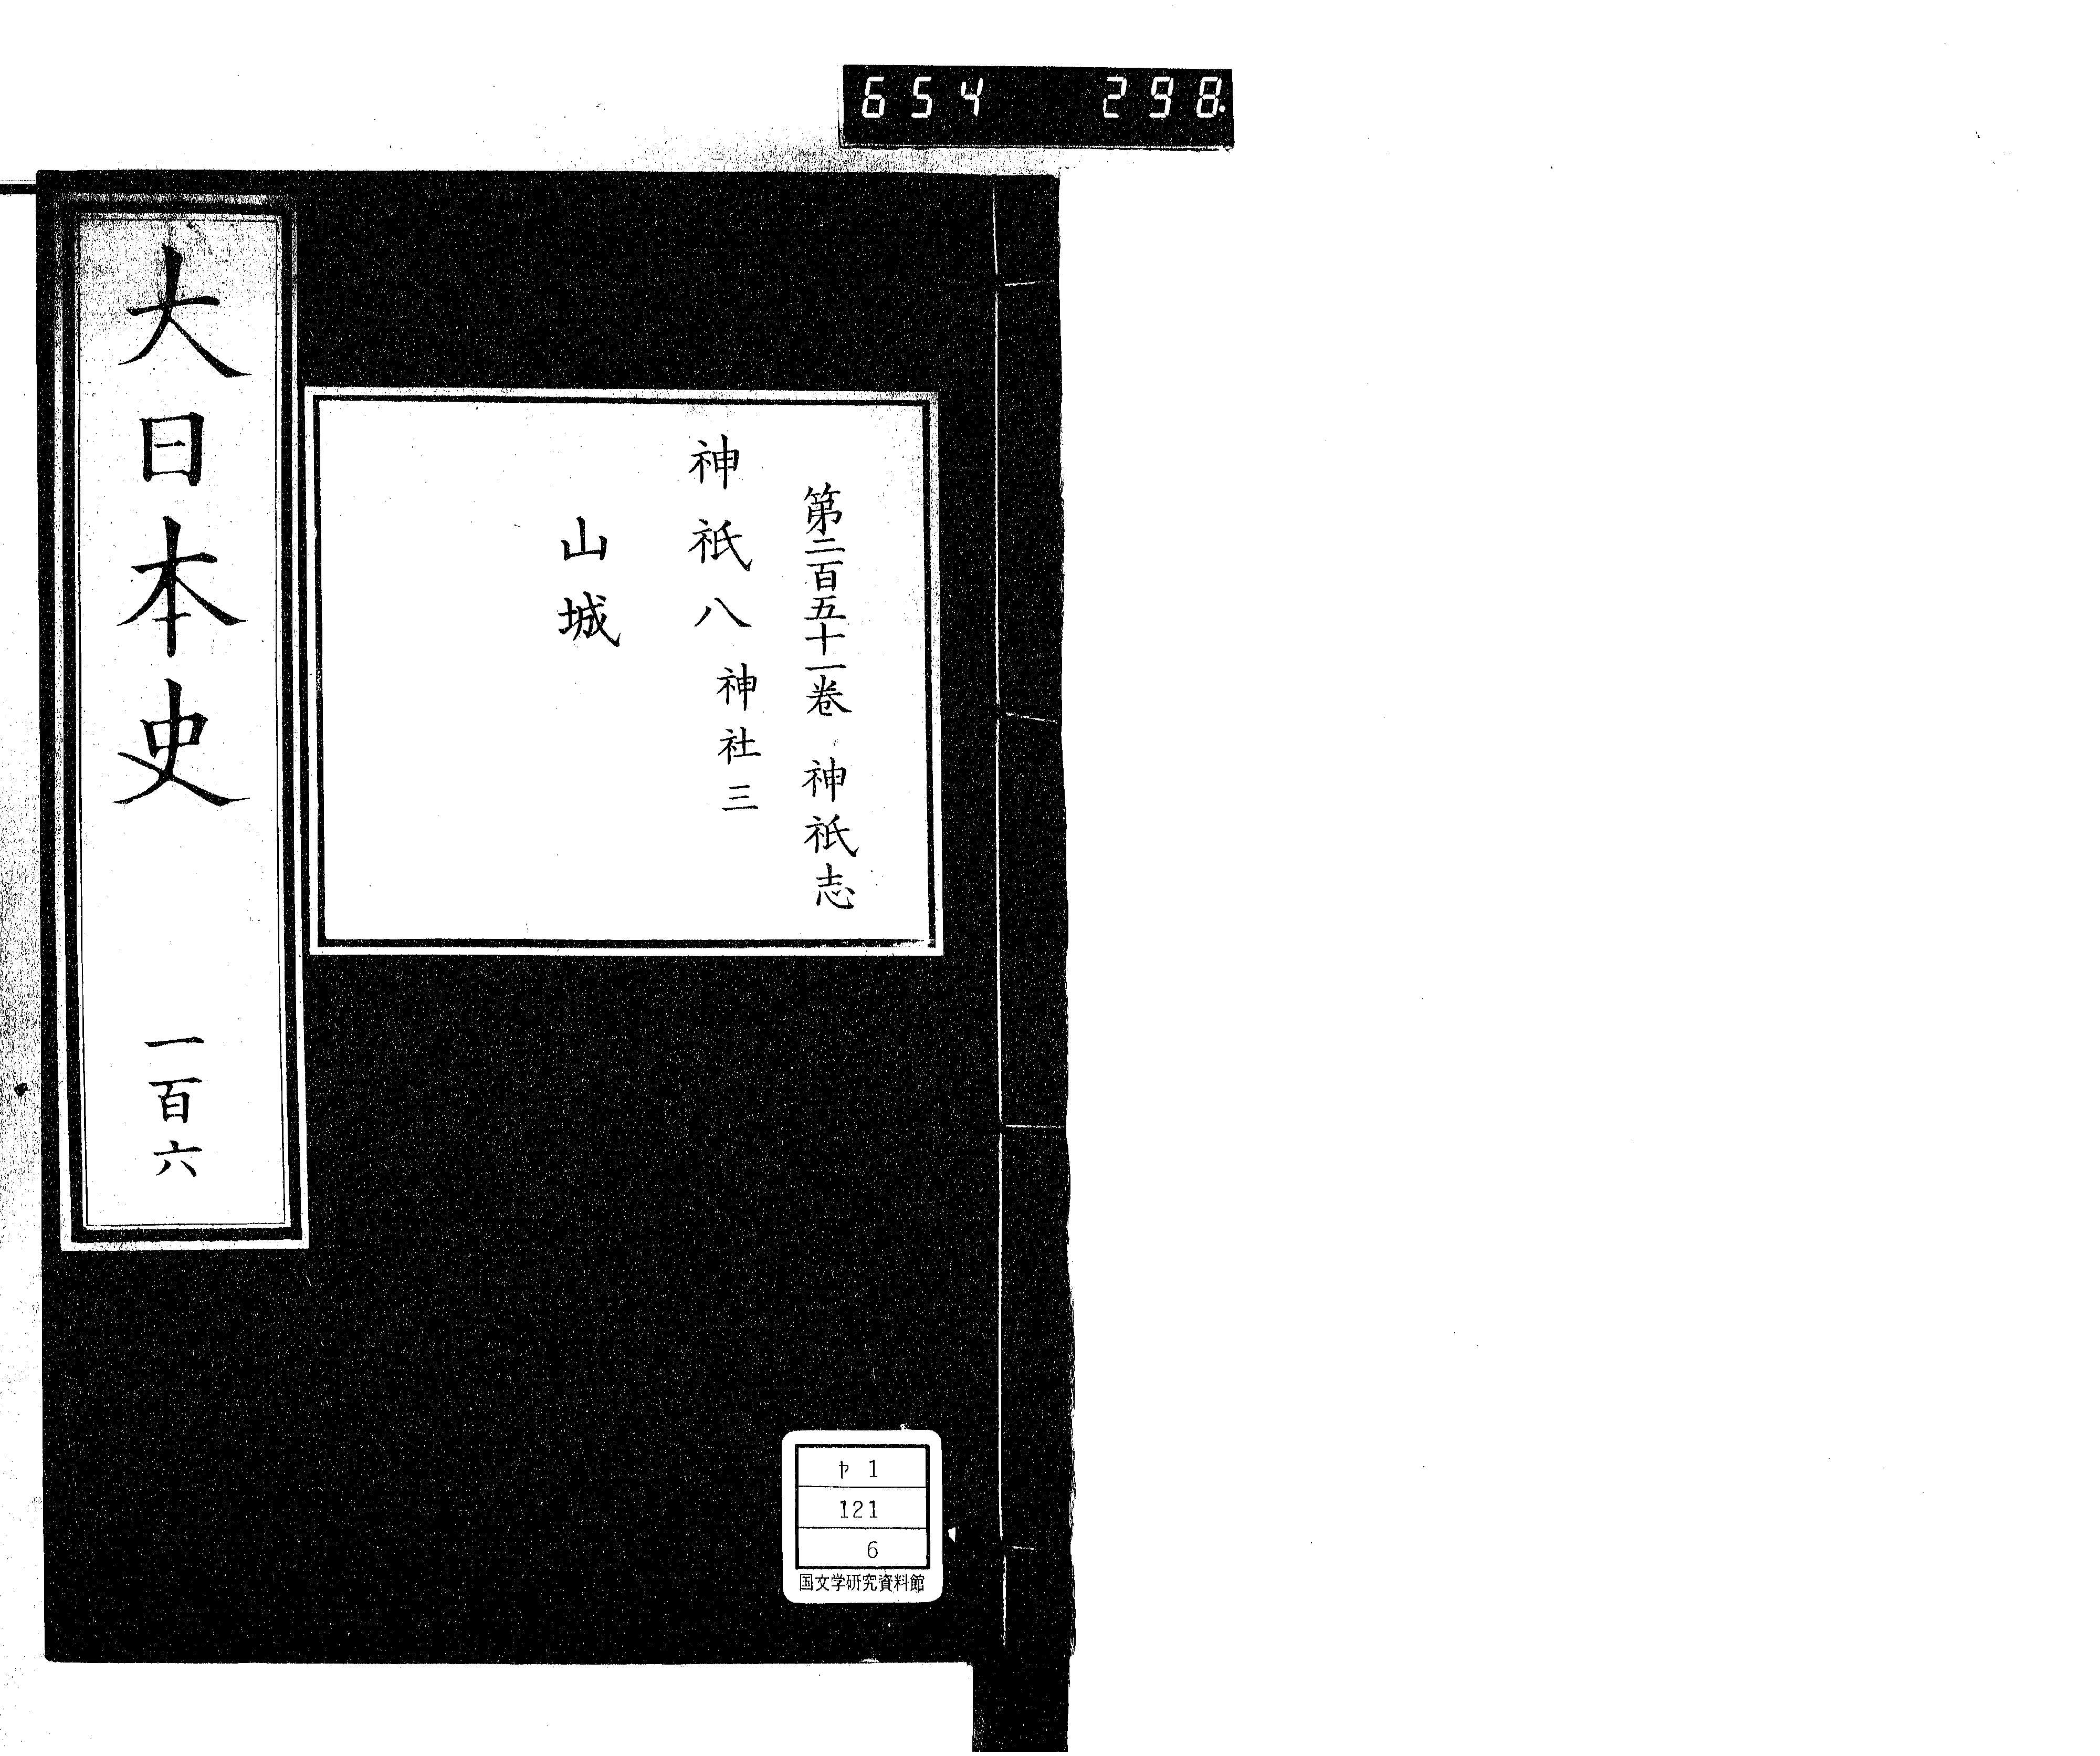 654 298.
第二百五十一卷 神祇志
神祇八 神社三
山城
大日本史 一百六
ヤ 1
121
6
国文学研究資料館